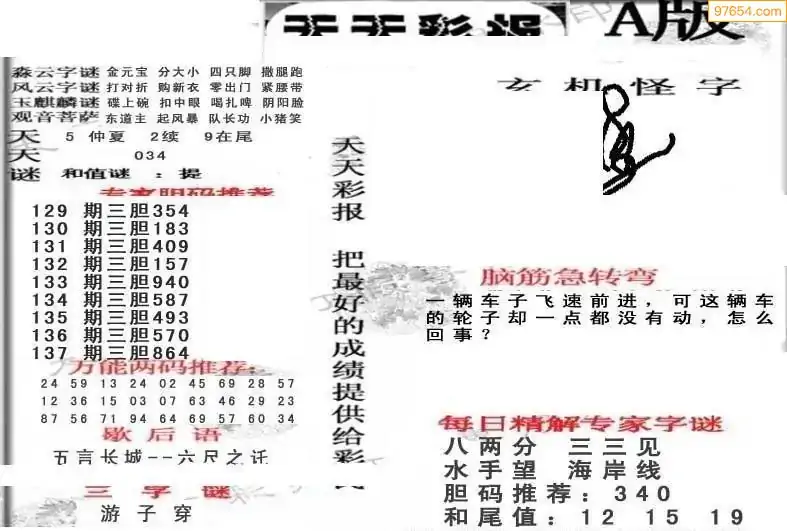 97654.com
天天彩报
A版
森云字谜 金元宝 分大小 四只脚 撒腿跑
风云字谜 打对折 购新衣 零出门 紧腰带
玉麒麟谜 碟上碗 扣中眼 喝扎啤 阴阳脸
观音菩萨 东道主 起风暴 队长功 小猪笑
天 5 仲夏 2续 9在尾
天 034
谜 和值谜 : 提
专家胆码推荐
129 期三胆354
130 期三胆183
131 期三胆409
132 期三胆157
133 期三胆940
134 期三胆587
135 期三胆493
136 期三胆570
137 期三胆864
万能两码推荐:
24 59 13 24 02 45 69 28 57
12 36 15 03 07 63 46 29 23
87 56 71 94 64 69 57 60 34
歇后语
五言长城--六尺之讬
三字谜
游子穿
天天彩报 把最好的成绩提供给彩民
玄机怪字
脑筋急转弯
一辆车子飞速前进，可这辆车
的轮子却一点都没有动，怎么
回事？
每日精解专家字谜
八两分 三三见
水手望 海岸线
胆码推荐: 340
和尾值: 12 15 19